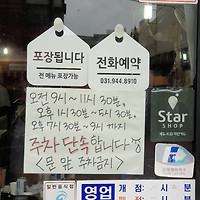 포장됩니다
전 메뉴 포장가능
전화예약
031.944.8910
오전 9시 ~ 11시 30분,
오후 11시 30분 ~ 5시 30분,
오후 7시 30분 ~ 9시 까지
주차 단속 합니다
< 문 앞 주차금지 >
Star
SHOP
일반음식점
영업
개 점: 시 분
폐 점: 시 분